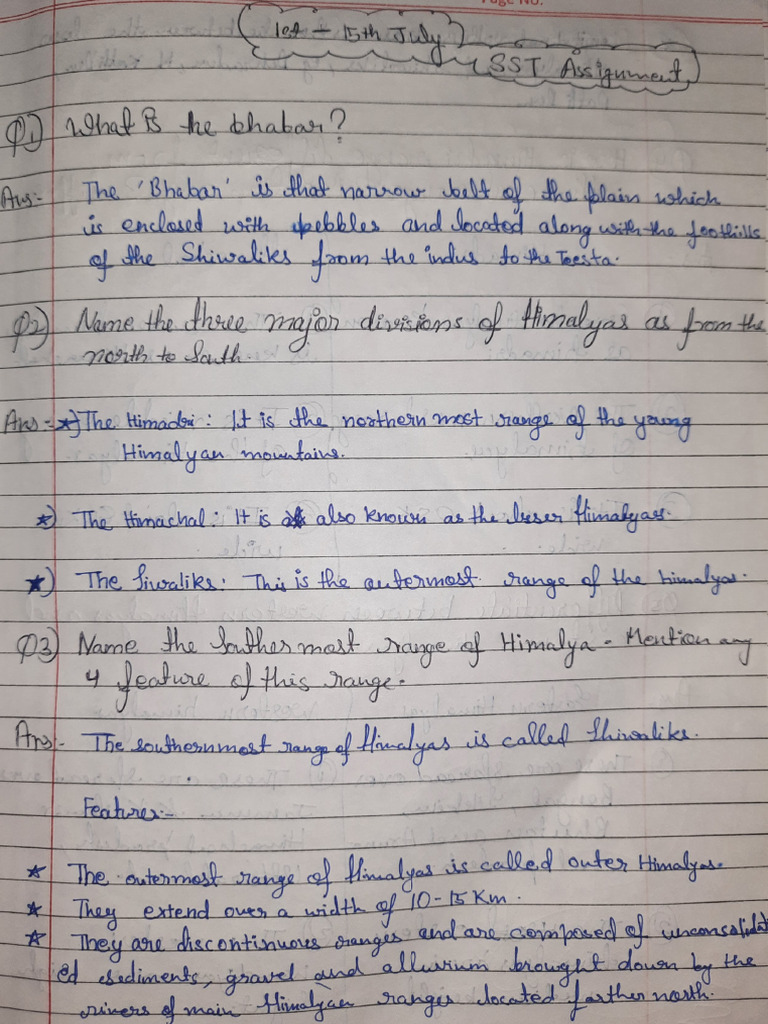 Page No.
1st - 15th July
SST Assignment
Q1) What is the bhabar?
Ans:- The 'Bhabar' is that narrow belt of the plain which
is enclosed with pebbles and located along with the foothills
of the Shiwaliks from the indus to the Teesta.
Q2) Name the three major divisions of Himalyas as from the
north to South.
Ans:- *) The Himadri: It is the northern most range of the young
Himalyan mountains.
*) The Himachal: It is also known as the lesser Himalayas.
*) The Siwaliks: This is the outermost range of the himalyas.
Q3) Name the Southermost range of Himalya - Mention any
4 feature of this range.
Ans:- The southernmost range of Himalyas is called Shiwaliks.
Features:-
* The outermost range of Himalyas is called outer Himalyas.
* They extend over a width of 10-15 Km.
* They are discontinuous ranges and are composed of unconsolidat
ed sediments, gravel and alluvium brought down by the
rivers of main Himalyan ranges located farther north.